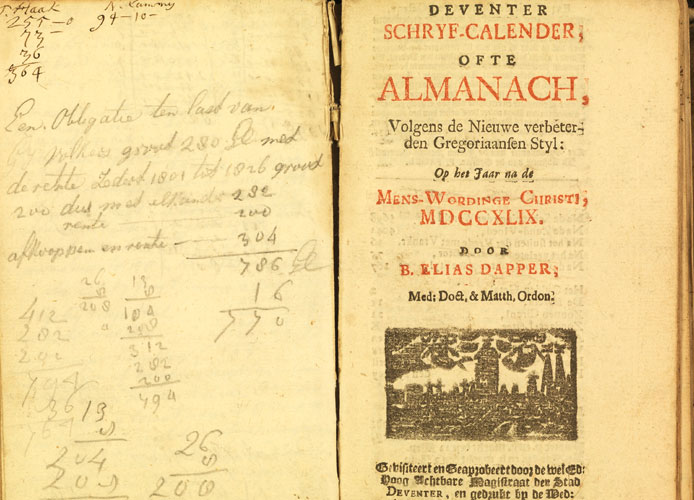 255-0 94-10-
73
36
364
Een Obligatie ten last van
groot 280 Gl met
de rente Zedert 1801 tot 1826 groot
200 dus met elkander 282
rente 200
afkoppen en rente - 304
786 Gl
16
770
26 13
8 8
208 104
208
312
282
200
794
412
282
19
26
200
DEVENTER
SCHRYF-CALENDER,
OFTE
ALMANACH,
Volgens de Nieuwe verbeter-
den Gregoriaansen Styl:
Op het Jaar na de
MENS-WORDINGE CHRISTI,
MDCCXLIX.
DOOR
B. ELIAS DAPPER,
Med: Doct, & Matth, Ordon:
Gevisiteert en Geaprobeert door de wel Ed:
Hoog Achtbare Magistraat der Stad
DEVENTER, en gedrukt by de Wed: